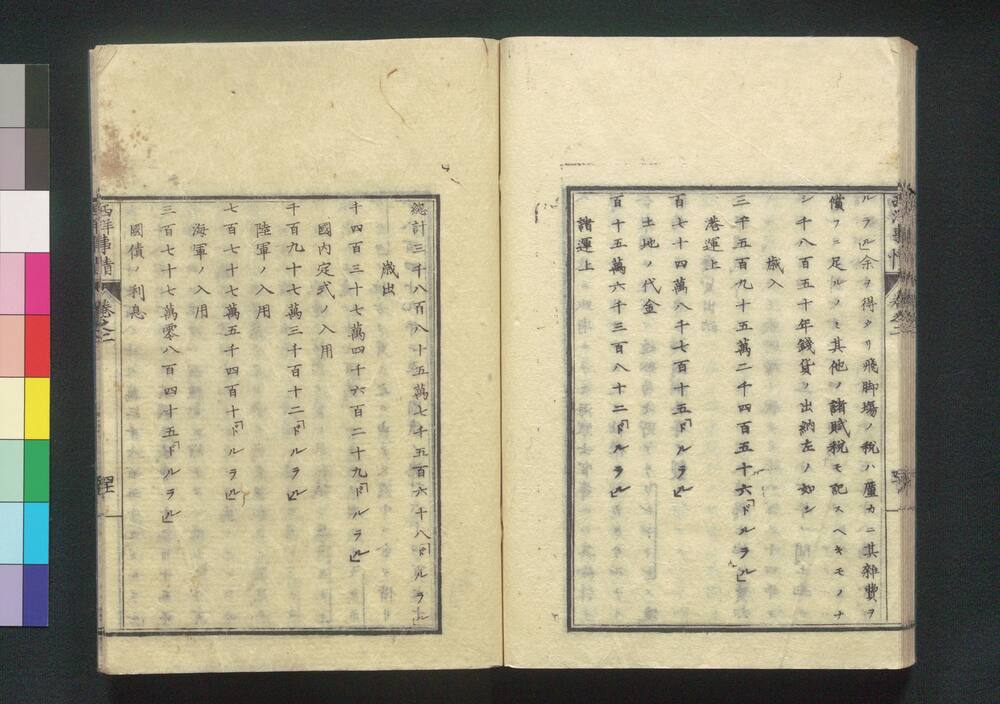 ルラル」余ヲ得タリ飛脚場ノ税ハ廑カニ其雜費ヲ
償フニ足ルノミ其他ノ諸賦税モ記スヘキモノナ
シ千八百五十年錢貨ノ出納左ノ如シ
歳入
三千五百九十五萬二千四百五十六「ドルラル」
港運上
百七十四萬八千七百十五「ドルラル」
土地ノ代金
百十五萬六千三百八十二「ドルラル」
諸運上
總計三千八百八十五萬七千五百六十八「ドルラル」
歳出
千四百三十七萬四千六百二十九「ドルラル」
國内定式ノ入用
千百九十七萬三千百十二「ドルラル」
陸軍ノ入用
七百七十七萬五千四百十「ドルラル」
海軍ノ入用
三百七十七萬零八百四十五「ドルラル」
國債ノ利息
西洋事情 卷之二